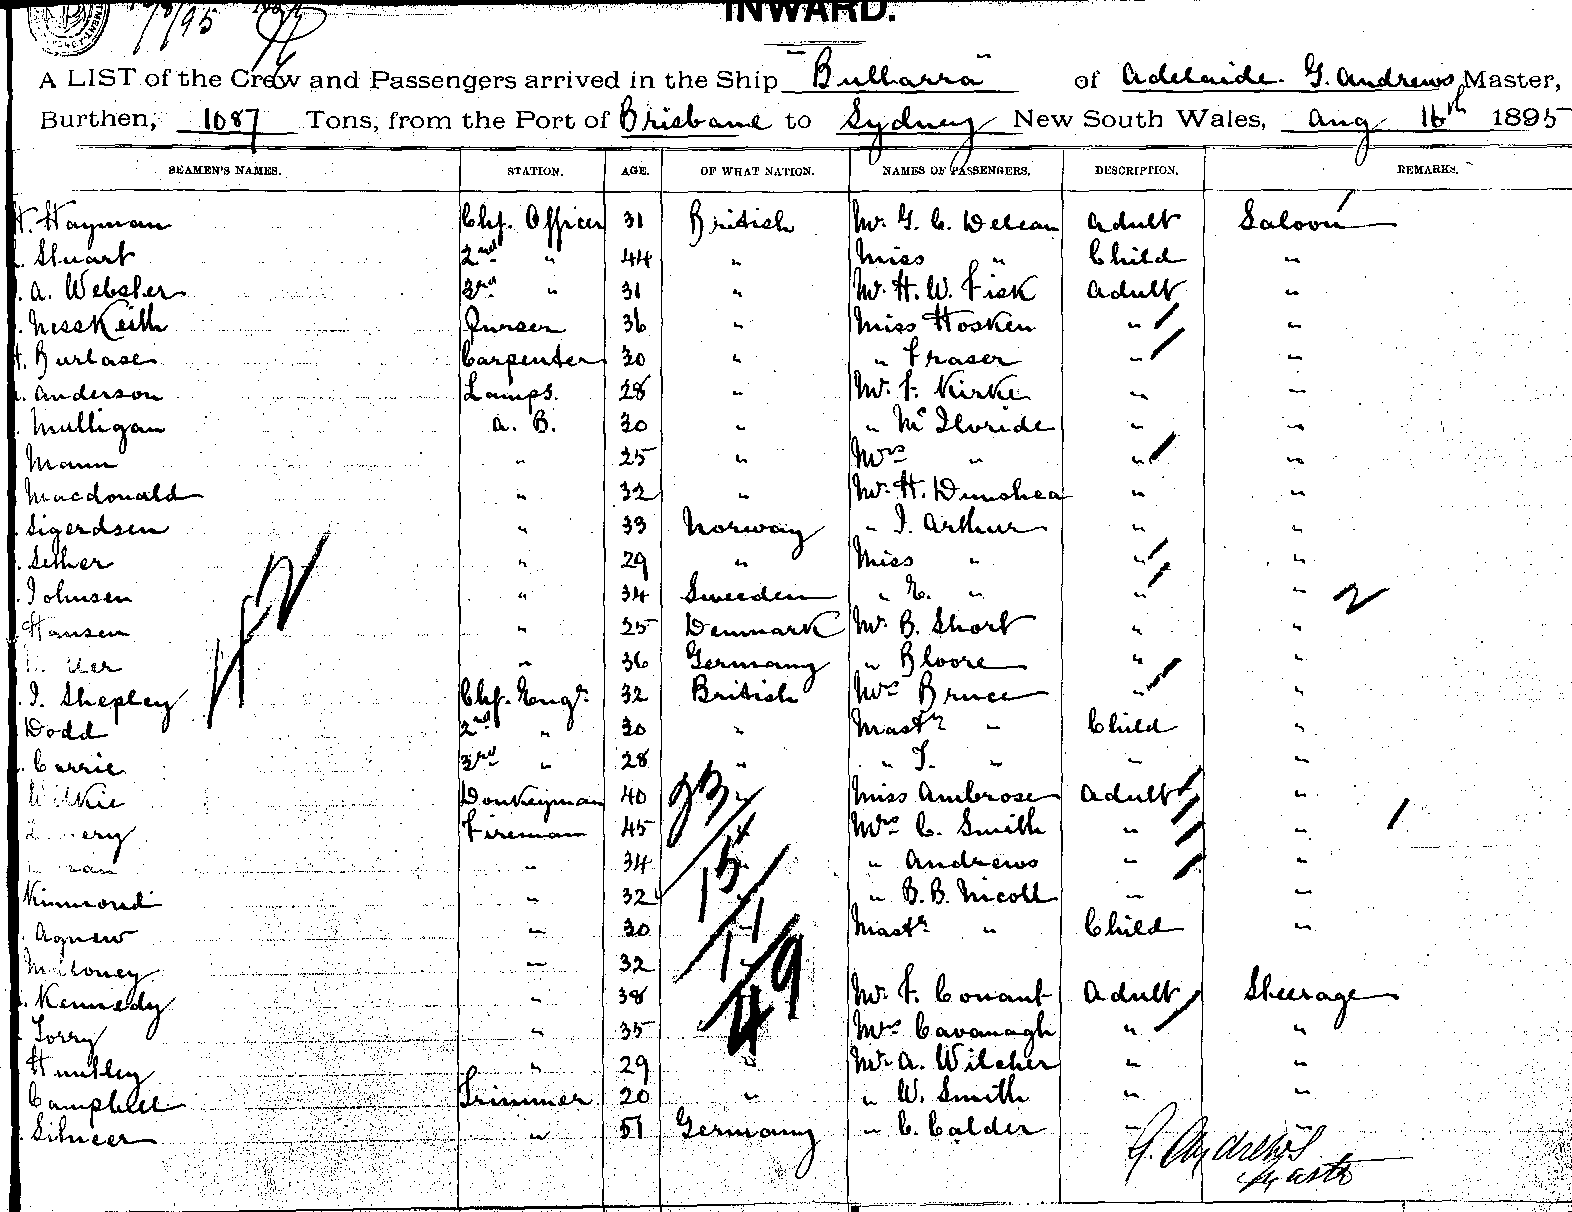 INWARD.
A LIST of the Crew and Passengers arrived in the Ship "Bullarra" of Adelaide. G. Andrews, Master,
Burthen, 1087 Tons, from the Port of Brisbane to Sydney New South Wales, Aug 16th 1895
SEAMEN'S NAMES. STATION. AGE. OF WHAT NATION. NAMES OF PASSENGERS. DESCRIPTION. REMARKS.
H. Hayman Chf. Officer 31 British Mr. G. C. Adult Saloon
Stuart 2nd " 44 " Miss " Child "
A. Webster 3rd " 31 " Mr. H. W. Fisk Adult "
NessKeith Purser 36 " Miss Hosken " "
H. Burlase Carpenter 30 " " Fraser " "
Anderson Lamps. 28 " Mr. F. Kirke " "
Mulligan A. B. 30 " " " "
Mann " 25 " Mrs " " "
Macdonald " 32 " Mr. H. Dunshea " "
Sigerdsen " 33 Norway " J. Arthur " "
Sether " 29 " Miss " " "
Johnsen " 34 Sweeden " E. " " "
Hansen " 25 Denmark Mr. B. Short " "
" 36 Germany " Bloore " "
J. Shepley Chf. Engr. 32 British Mrs Bruce " "
Dodd 2nd " 30 " Mastr " Child "
Currie 3rd " 28 " " J. " " "
Wilkie Donkeyman 40 " Miss Ambrose Adult "
Fireman 45 Mrs C. Smith " "
" 34 " Andrews " "
Kinmond " 32 " B. B. Nicoll " "
Agnew " 30 Mastr " Child "
Maloney " 32
Kennedy " 38 Mr. F. Conant Adult Steerage
Torry " 35 Mrs Cavanagh " "
Huntley " 29 " Mr. A. Wilcher " "
Campbell Trimmer 20 " " W. Smith " "
" 51 Germany " C. Calder " "
G. Andrews
Master